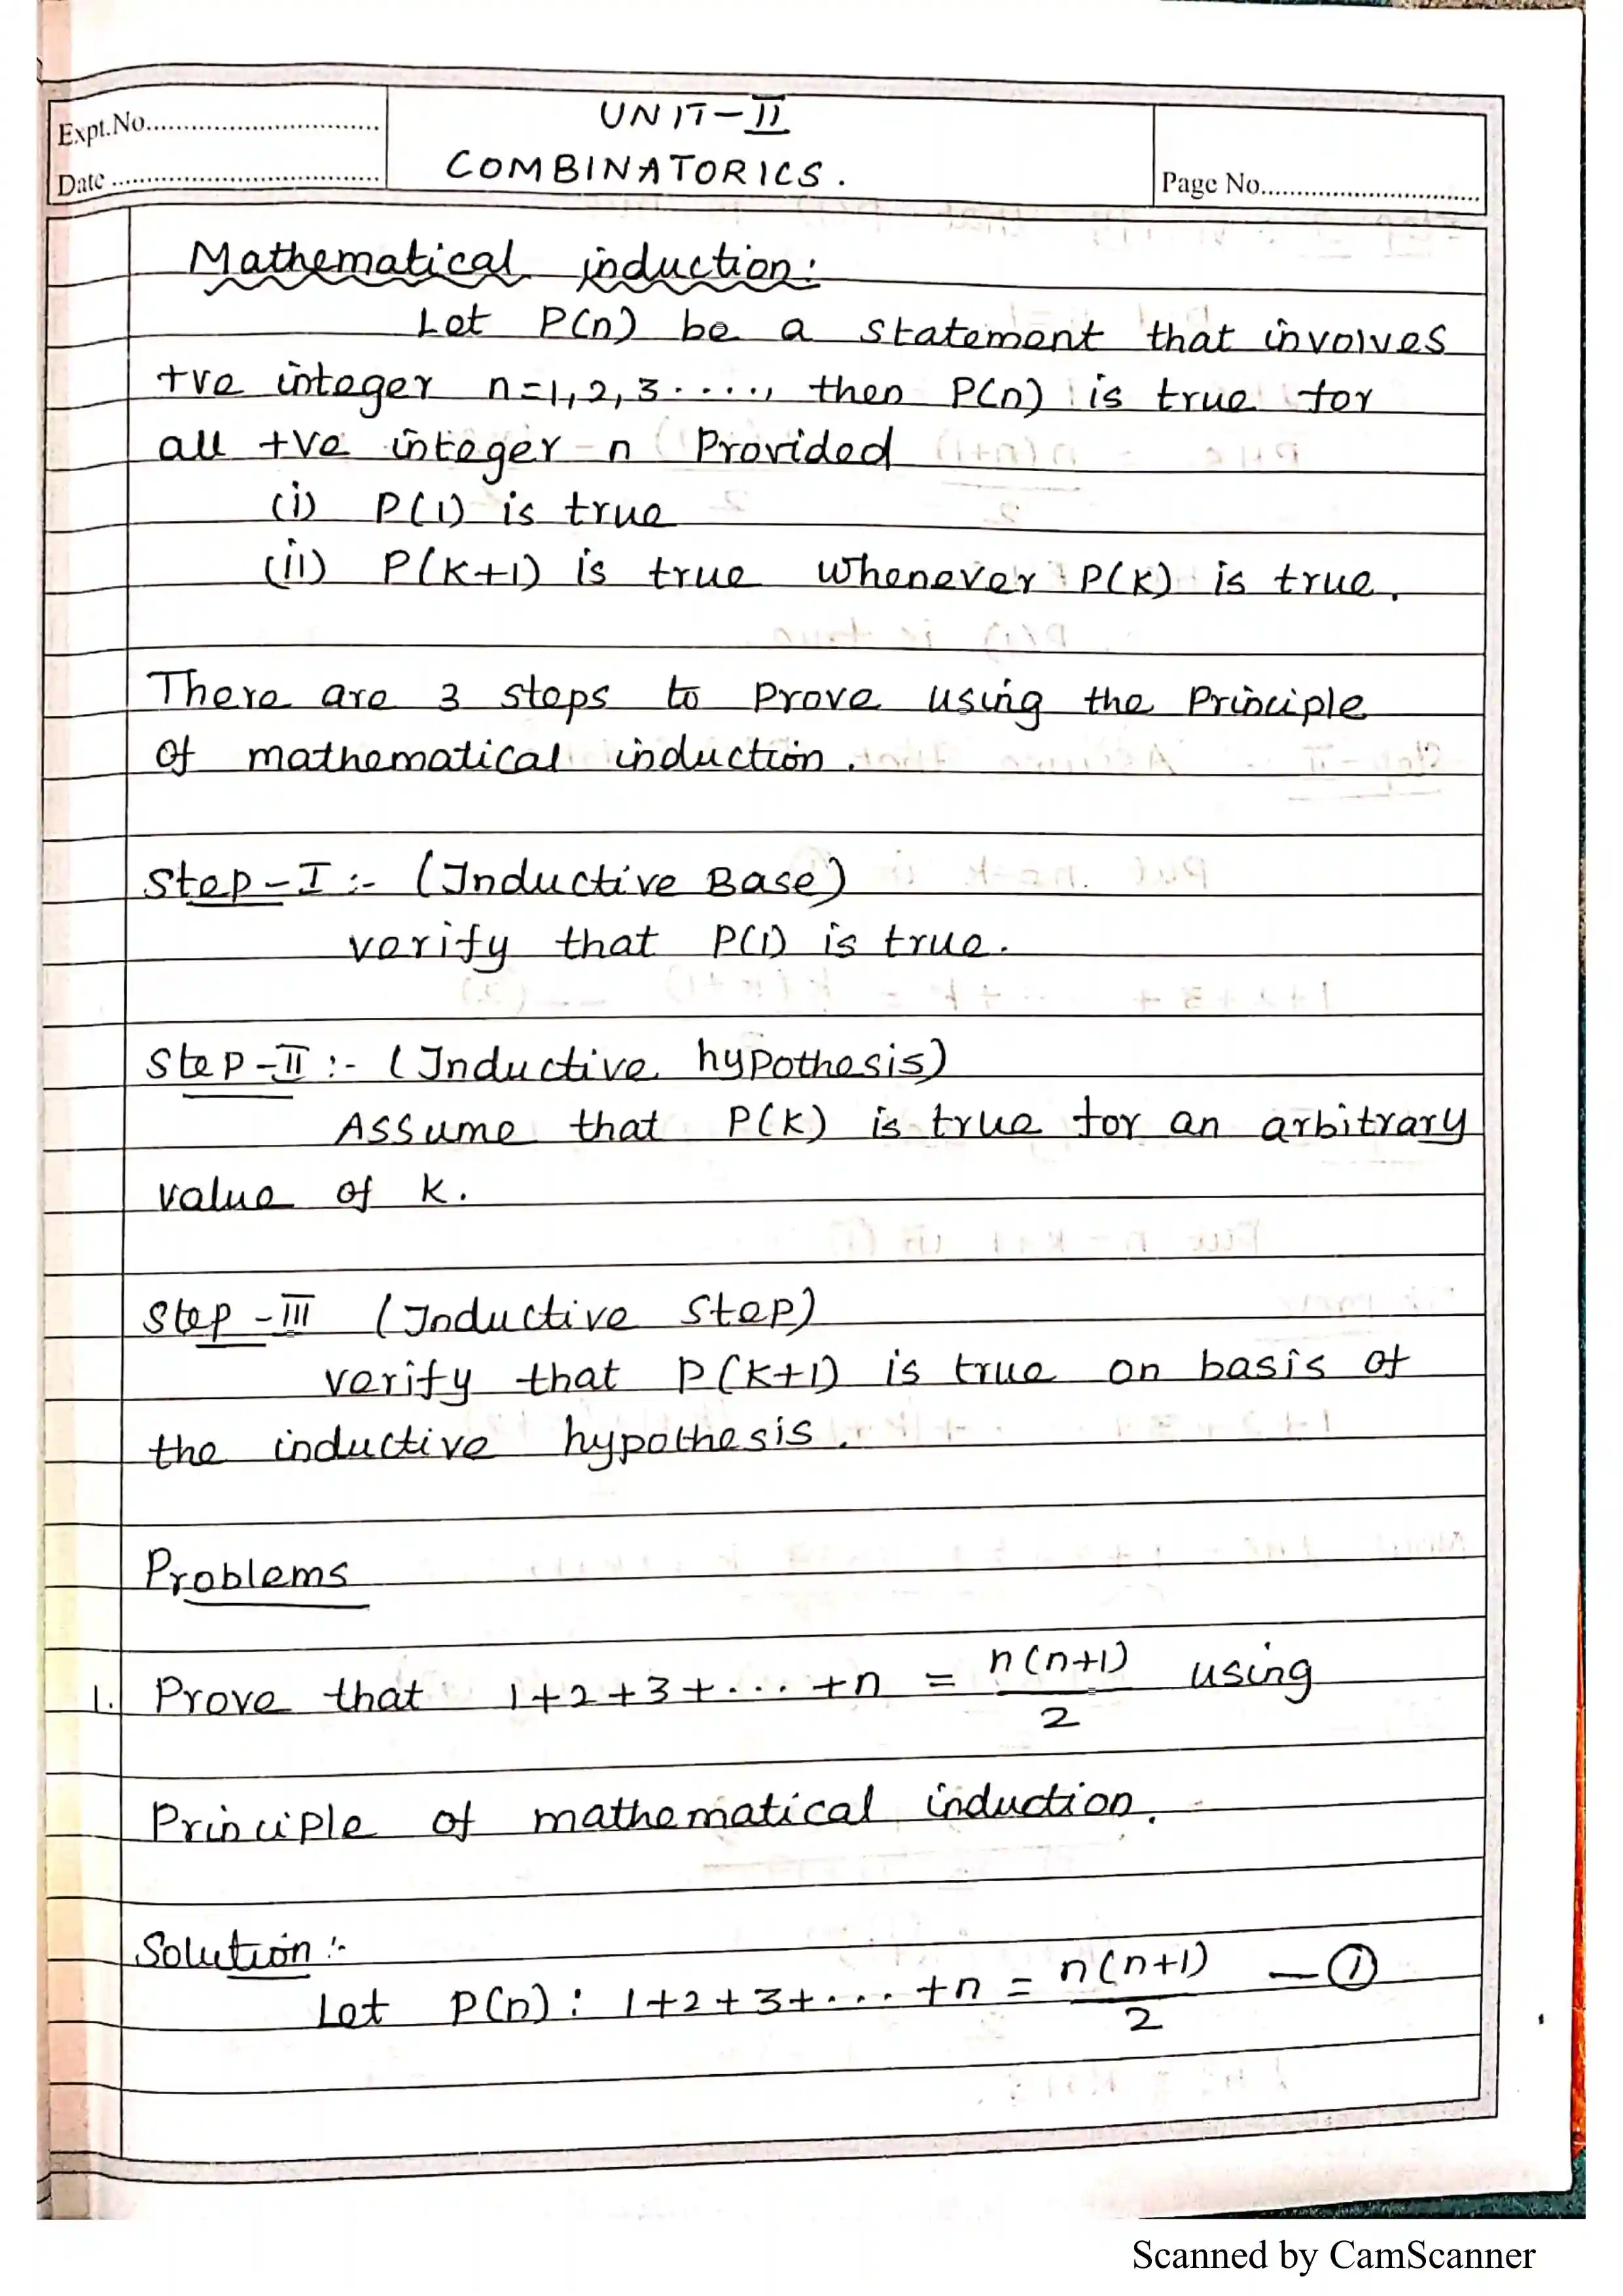 UNIT-II
Expt.No.............................
COMBINATORICS.
Date .................................
Page No.............................
Mathematical induction:
Let P(n) be a statement that involves
+ve integer n=1,2,3....., then P(n) is true for
all +ve integer n Provided
(i) P(1) is true
(ii) P(K+1) is true whenever P(K) is true.
There are 3 steps to prove using the Principle
of mathematical induction.
Step-I :- (Inductive Base)
verify that P(1) is true.
Step-II :- (Inductive hypothesis)
Assume that P(K) is true for an arbitrary
value of K.
Step-III (Inductive Step)
verify that P(K+1) is true on basis of
the inductive hypothesis.
Problems
1. Prove that 1+2+3+...+n = n(n+1)/2 using
Principle of mathematical induction.
Solution :-
Let P(n): 1+2+3+...+n = n(n+1)/2 —①
Scanned by CamScanner